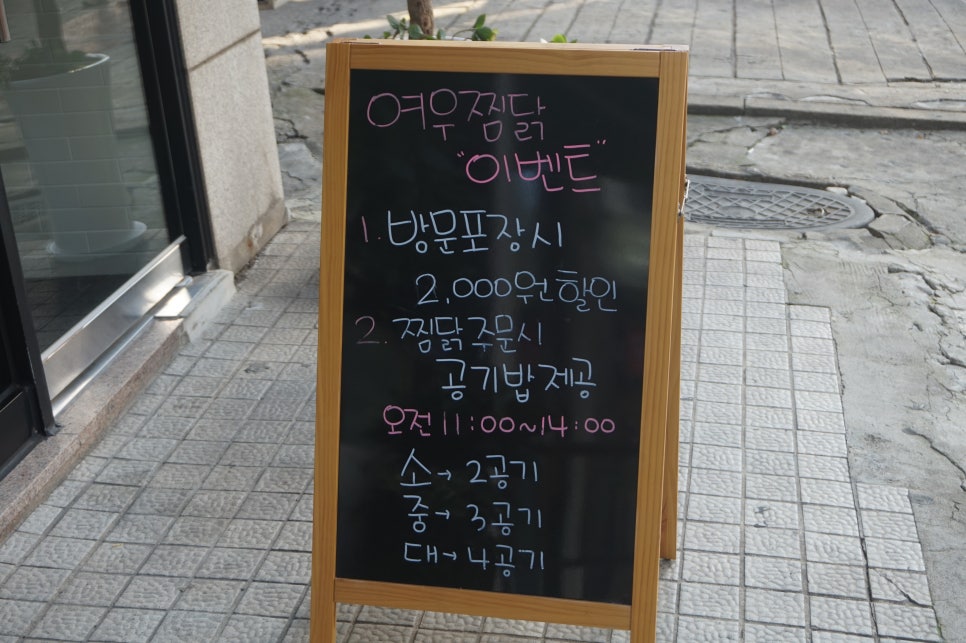 여우찜닭
"이벤트"
1. 방문포장시
2,000원할인
2. 찜닭주문시
공기밥제공
오전 11:00~14:00
소→ 2공기
중→ 3공기
대→ 4공기